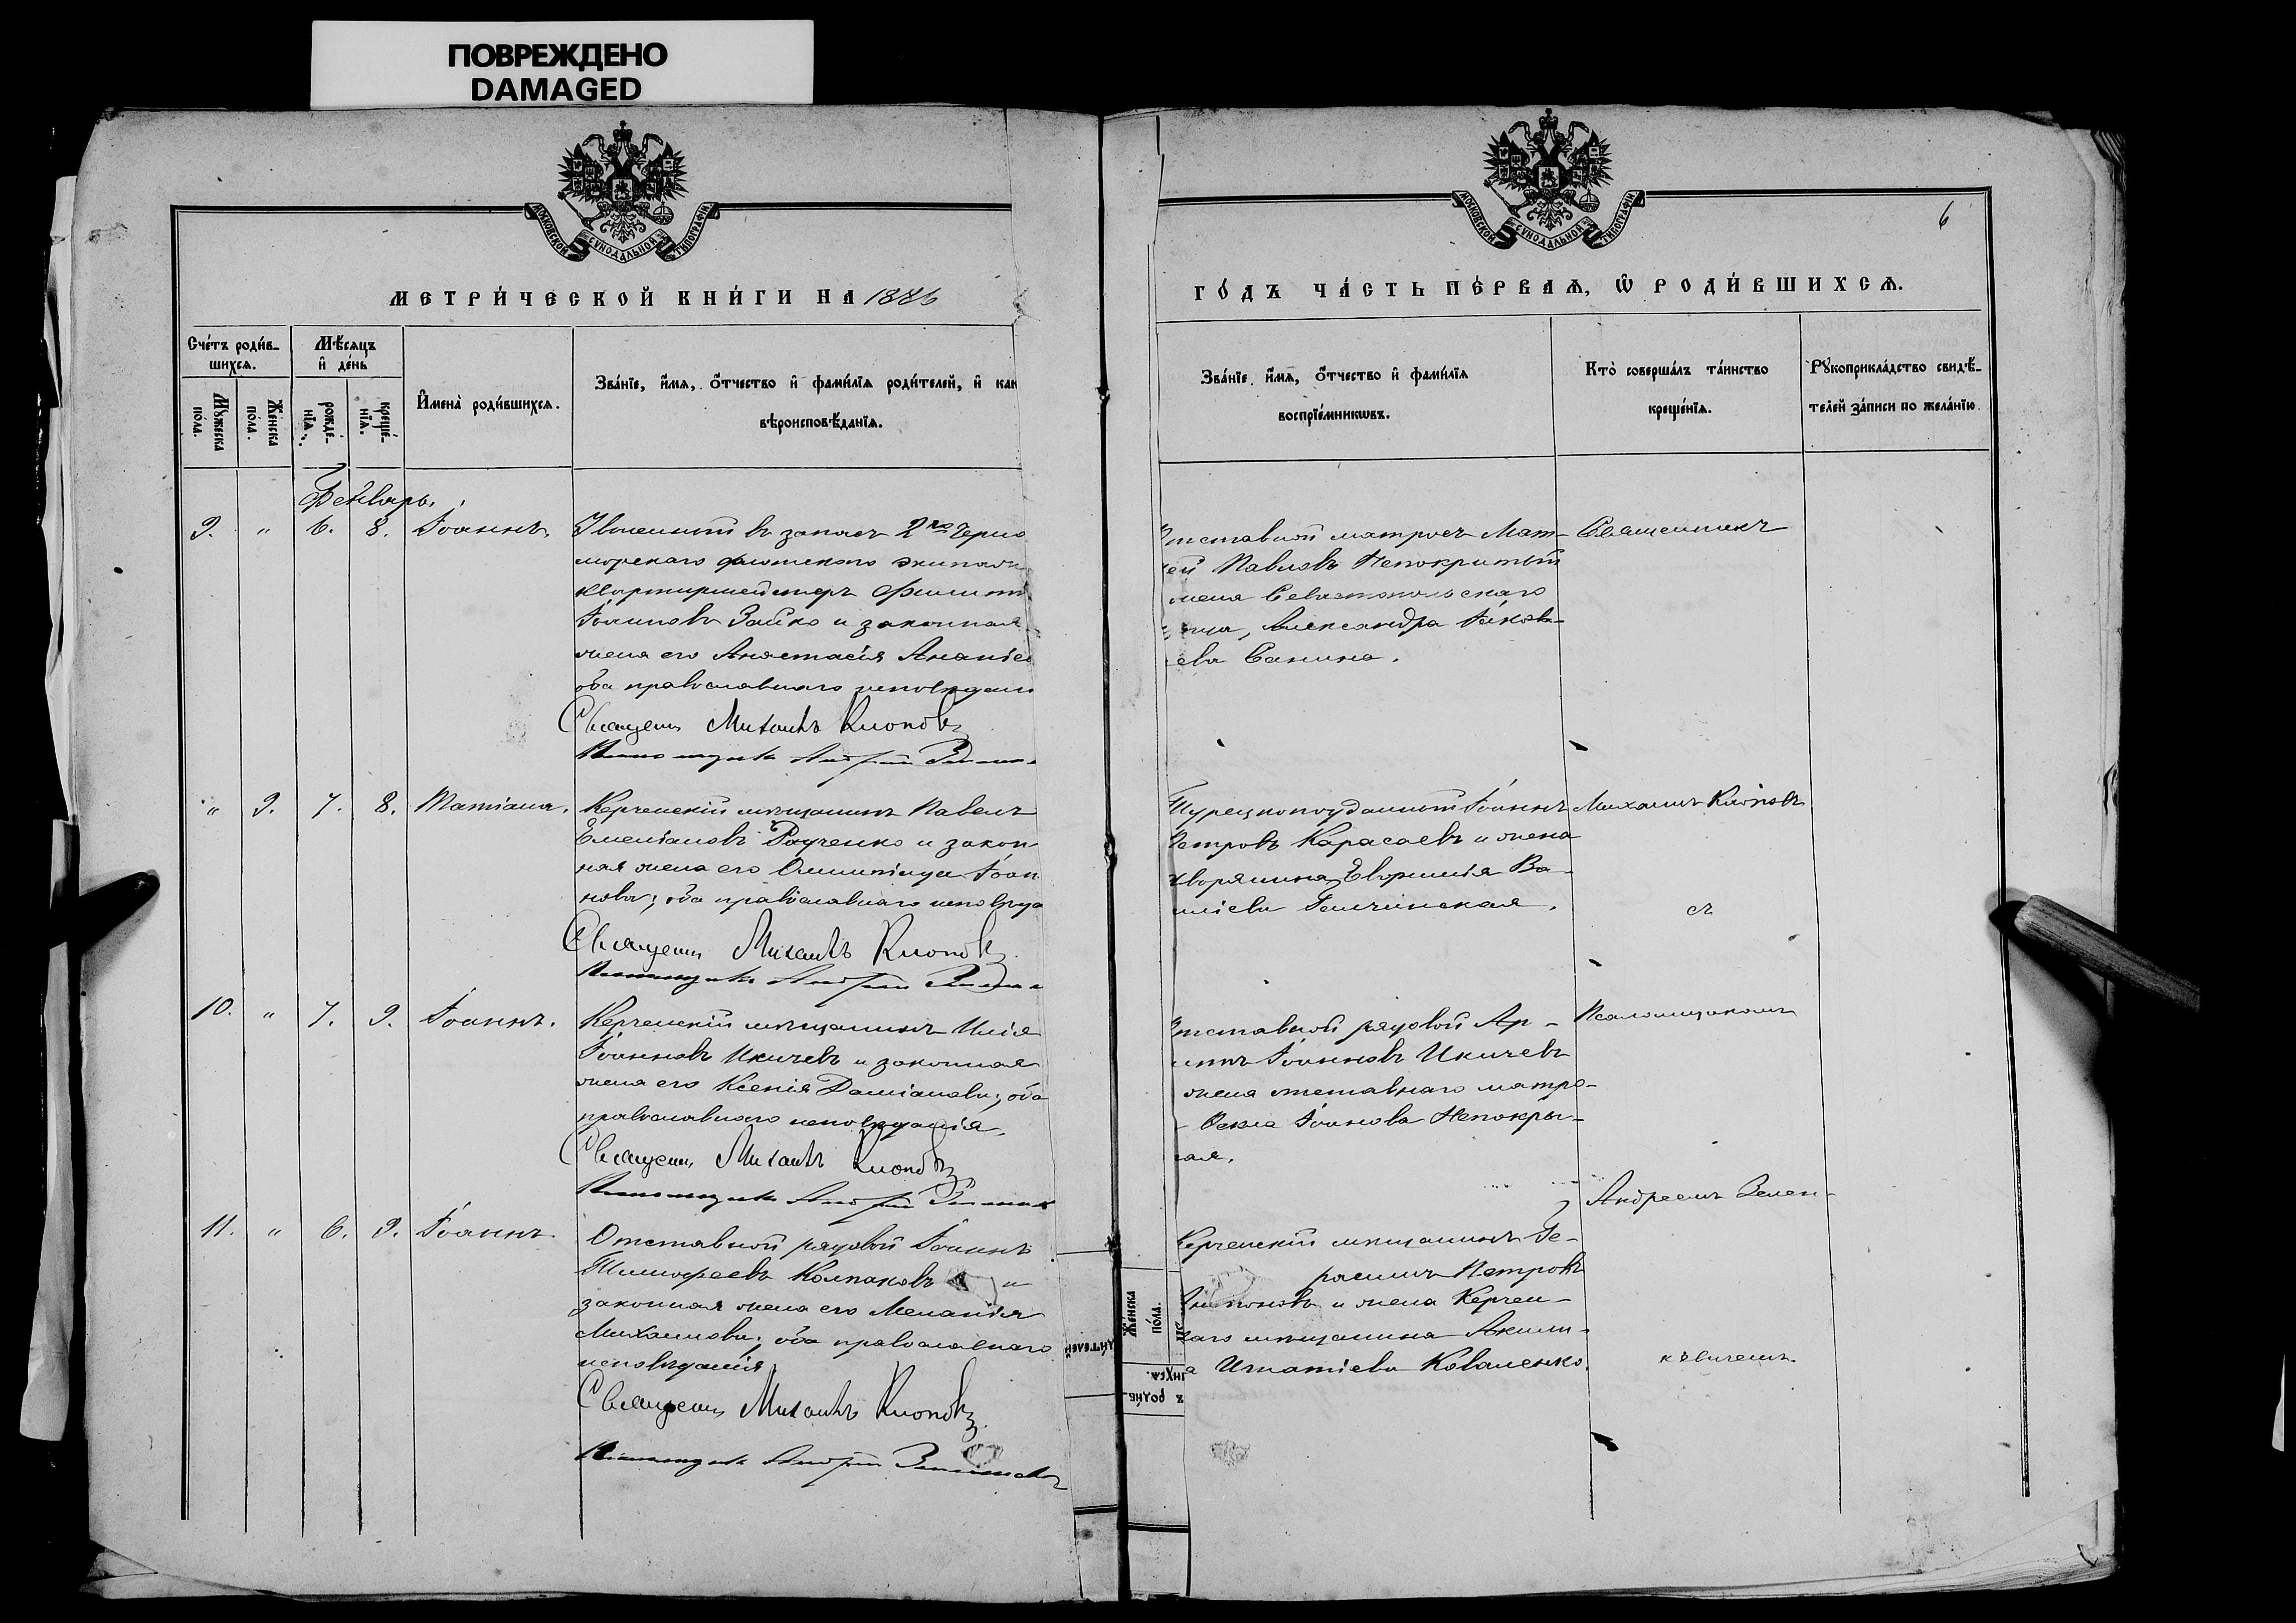 ПОВРЕЖДЕНО
DAMAGED
МОСКОВСКОЙ СѴНОДАЛЬНОЙ ТИПОГРАФІИ
МЕТРИ́ЧЕСКОЙ КНИ́ГИ НА 1886
Сче́тъ роди́в-
шихсѧ.
Мѣ́сѧцъ
и҆ де́нь
Мꙋ́жеска
по́ла.
Же́нска
по́ла.
рожде́-
нїѧ.
креще́-
нїѧ.
И҆мена̀ роди́вшихсѧ.
Зва́нїе, и҆́мѧ, ѻ҆́тчество и҆ фами́лїѧ роди́телей, и҆ как
вѣроисповѣ́данїѧ.
Февларь.
9. " 6. 8. Іоаннъ.
въ запасъ 2го Черно
морскаго флотскаго экипаж
квартирмейстеръ Филипп
Іоанновъ Зайко и законная
жена его Анастасія Ананіев
оба православнаго исповѣдан
Священ Михаилъ Клоповъ
" 9. 7. 8. Татіана.
Керченскій мѣщанинъ Павелъ
Емеліановъ Радченко и закон-
ная жена его Олимпіада Іоан
нова; оба православнаго исповѣда
Священ Михаилъ Клоповъ
10. " 7. 9. Іоаннъ.
Керченскій мѣщанинъ Илія
Іоанновъ Икичевъ и законная
жена его Ксенія Даміанова; оба
православнаго исповѣданія.
Священ Михаилъ Клоповъ
11. " 6. 9. Іоаннъ.
Отставной рядовой Іоаннъ
Тимофеевъ Колпаковъ и
законная жена его Меланія
Михаилова; оба православнаго
исповѣданія
Священ Михаилъ Клоповъ
6
МОСКОВСКОЙ СѴНОДАЛЬНОЙ ТИПОГРАФІИ
ГО́ДЪ ЧА́СТЬ ПЕ́РВАѦ, Ѡ҆ РОДИ́ВШИХСѦ.
Зва́нїе, и҆́мѧ, ѻ҆́тчество и҆ фами́лїѧ
воспрїе́мникѡвъ.
Кто̀ соверша́лъ та́инство
креще́нїѧ.
Рꙋкоприкла́дство свидѣ́-
телей за́писи по жела́нїю.
тставной матросъ Мат-
ѳей Павловъ Непокрытый
жена Севастопольскаго
Александра Іаковл-
ева Санина.
Священникъ
Турецкоподданный Іоаннъ
Петровъ Карасаевъ и жена
дворянина Евфимія Ва-
иліева
Михаилъ Клоповъ
съ
тставной рядовой Ар-
Іоанновъ Икичевъ
жена отставнаго матро-
Ѳекла Іоанова Непокры-
тая.
Псаломщикомъ
Андреемъ Зелен-
Керченскій мѣщанинъ Ге-
расимъ Петровъ
и жена Керчен-
каго мѣщанина Акили-
а Игнатіева Коваленко.
кѣвичемъ.
Же́нска
по́ла.